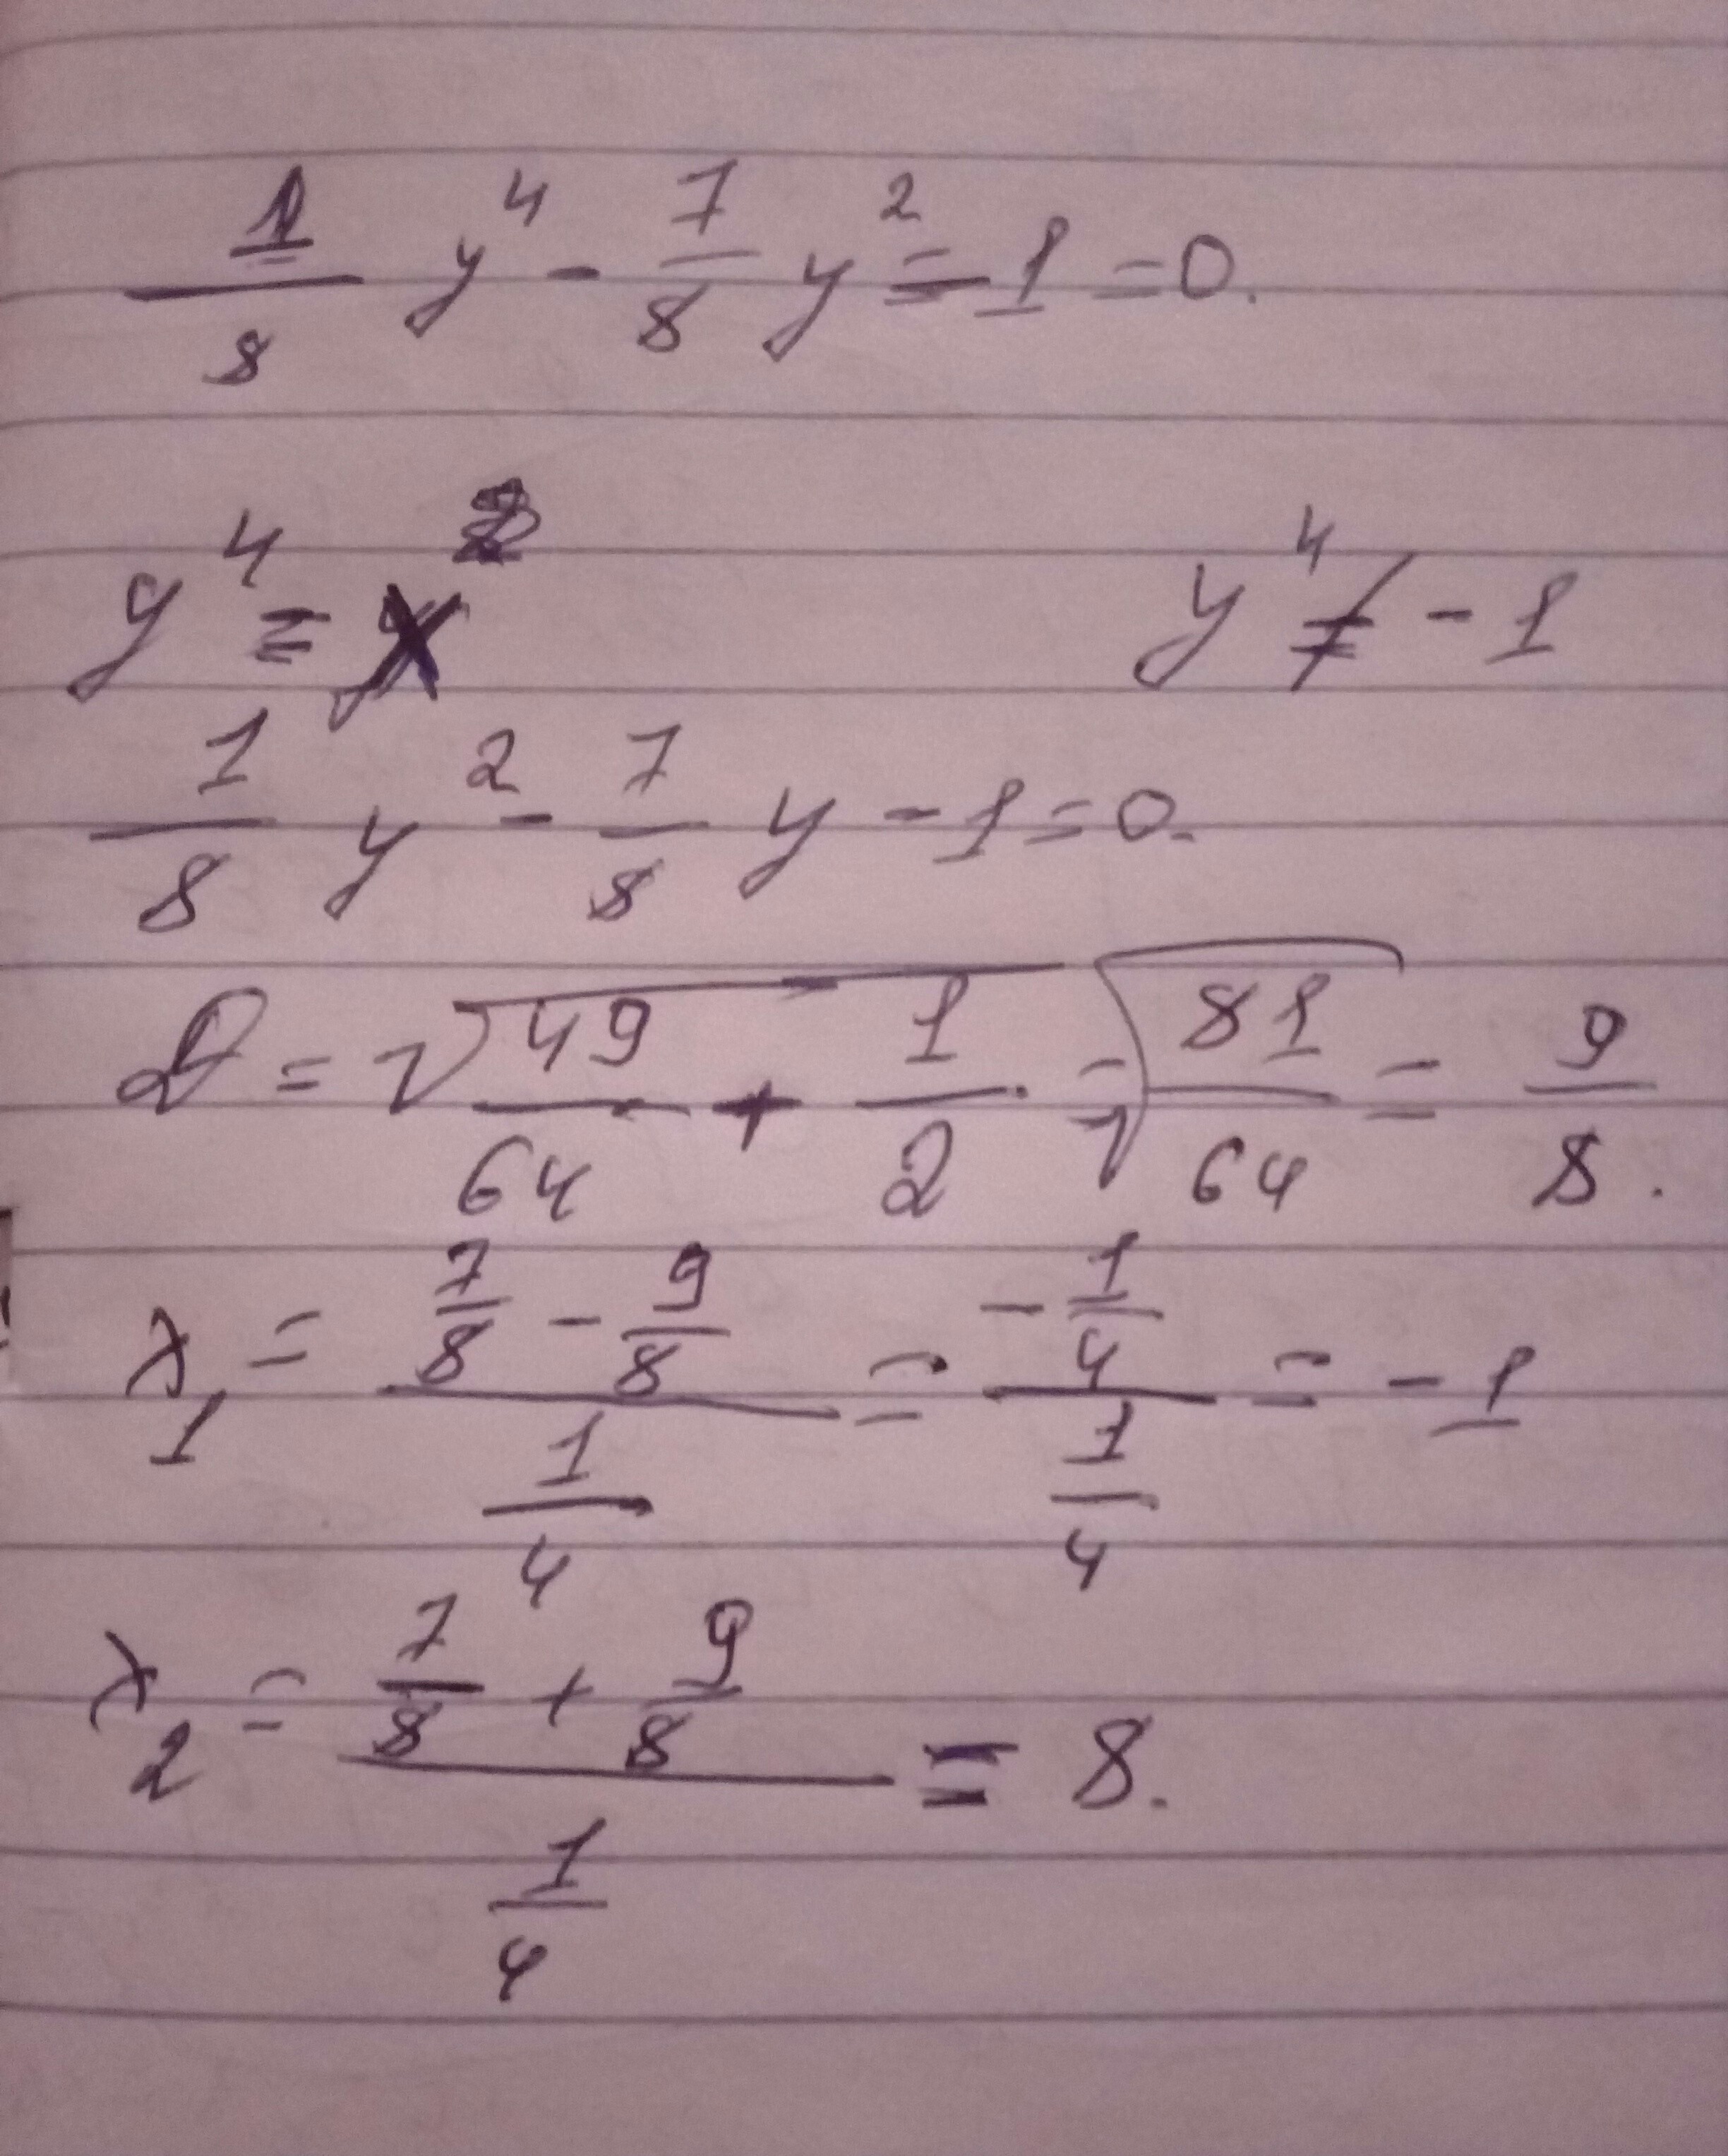 1/8 y⁴ - 7/8 y² - 1 = 0.
y⁴ = y⁴ ≠ -1
1/8 y² - 7/8 y - 1 = 0.
D = √(49/64 + 1/2) = √(81/64) = 9/8.
x₁ = (7/8 - 9/8)/(1/4) = (-1/4)/(1/4) = -1
x₂ = (7/8 + 9/8)/(1/4) = 8.